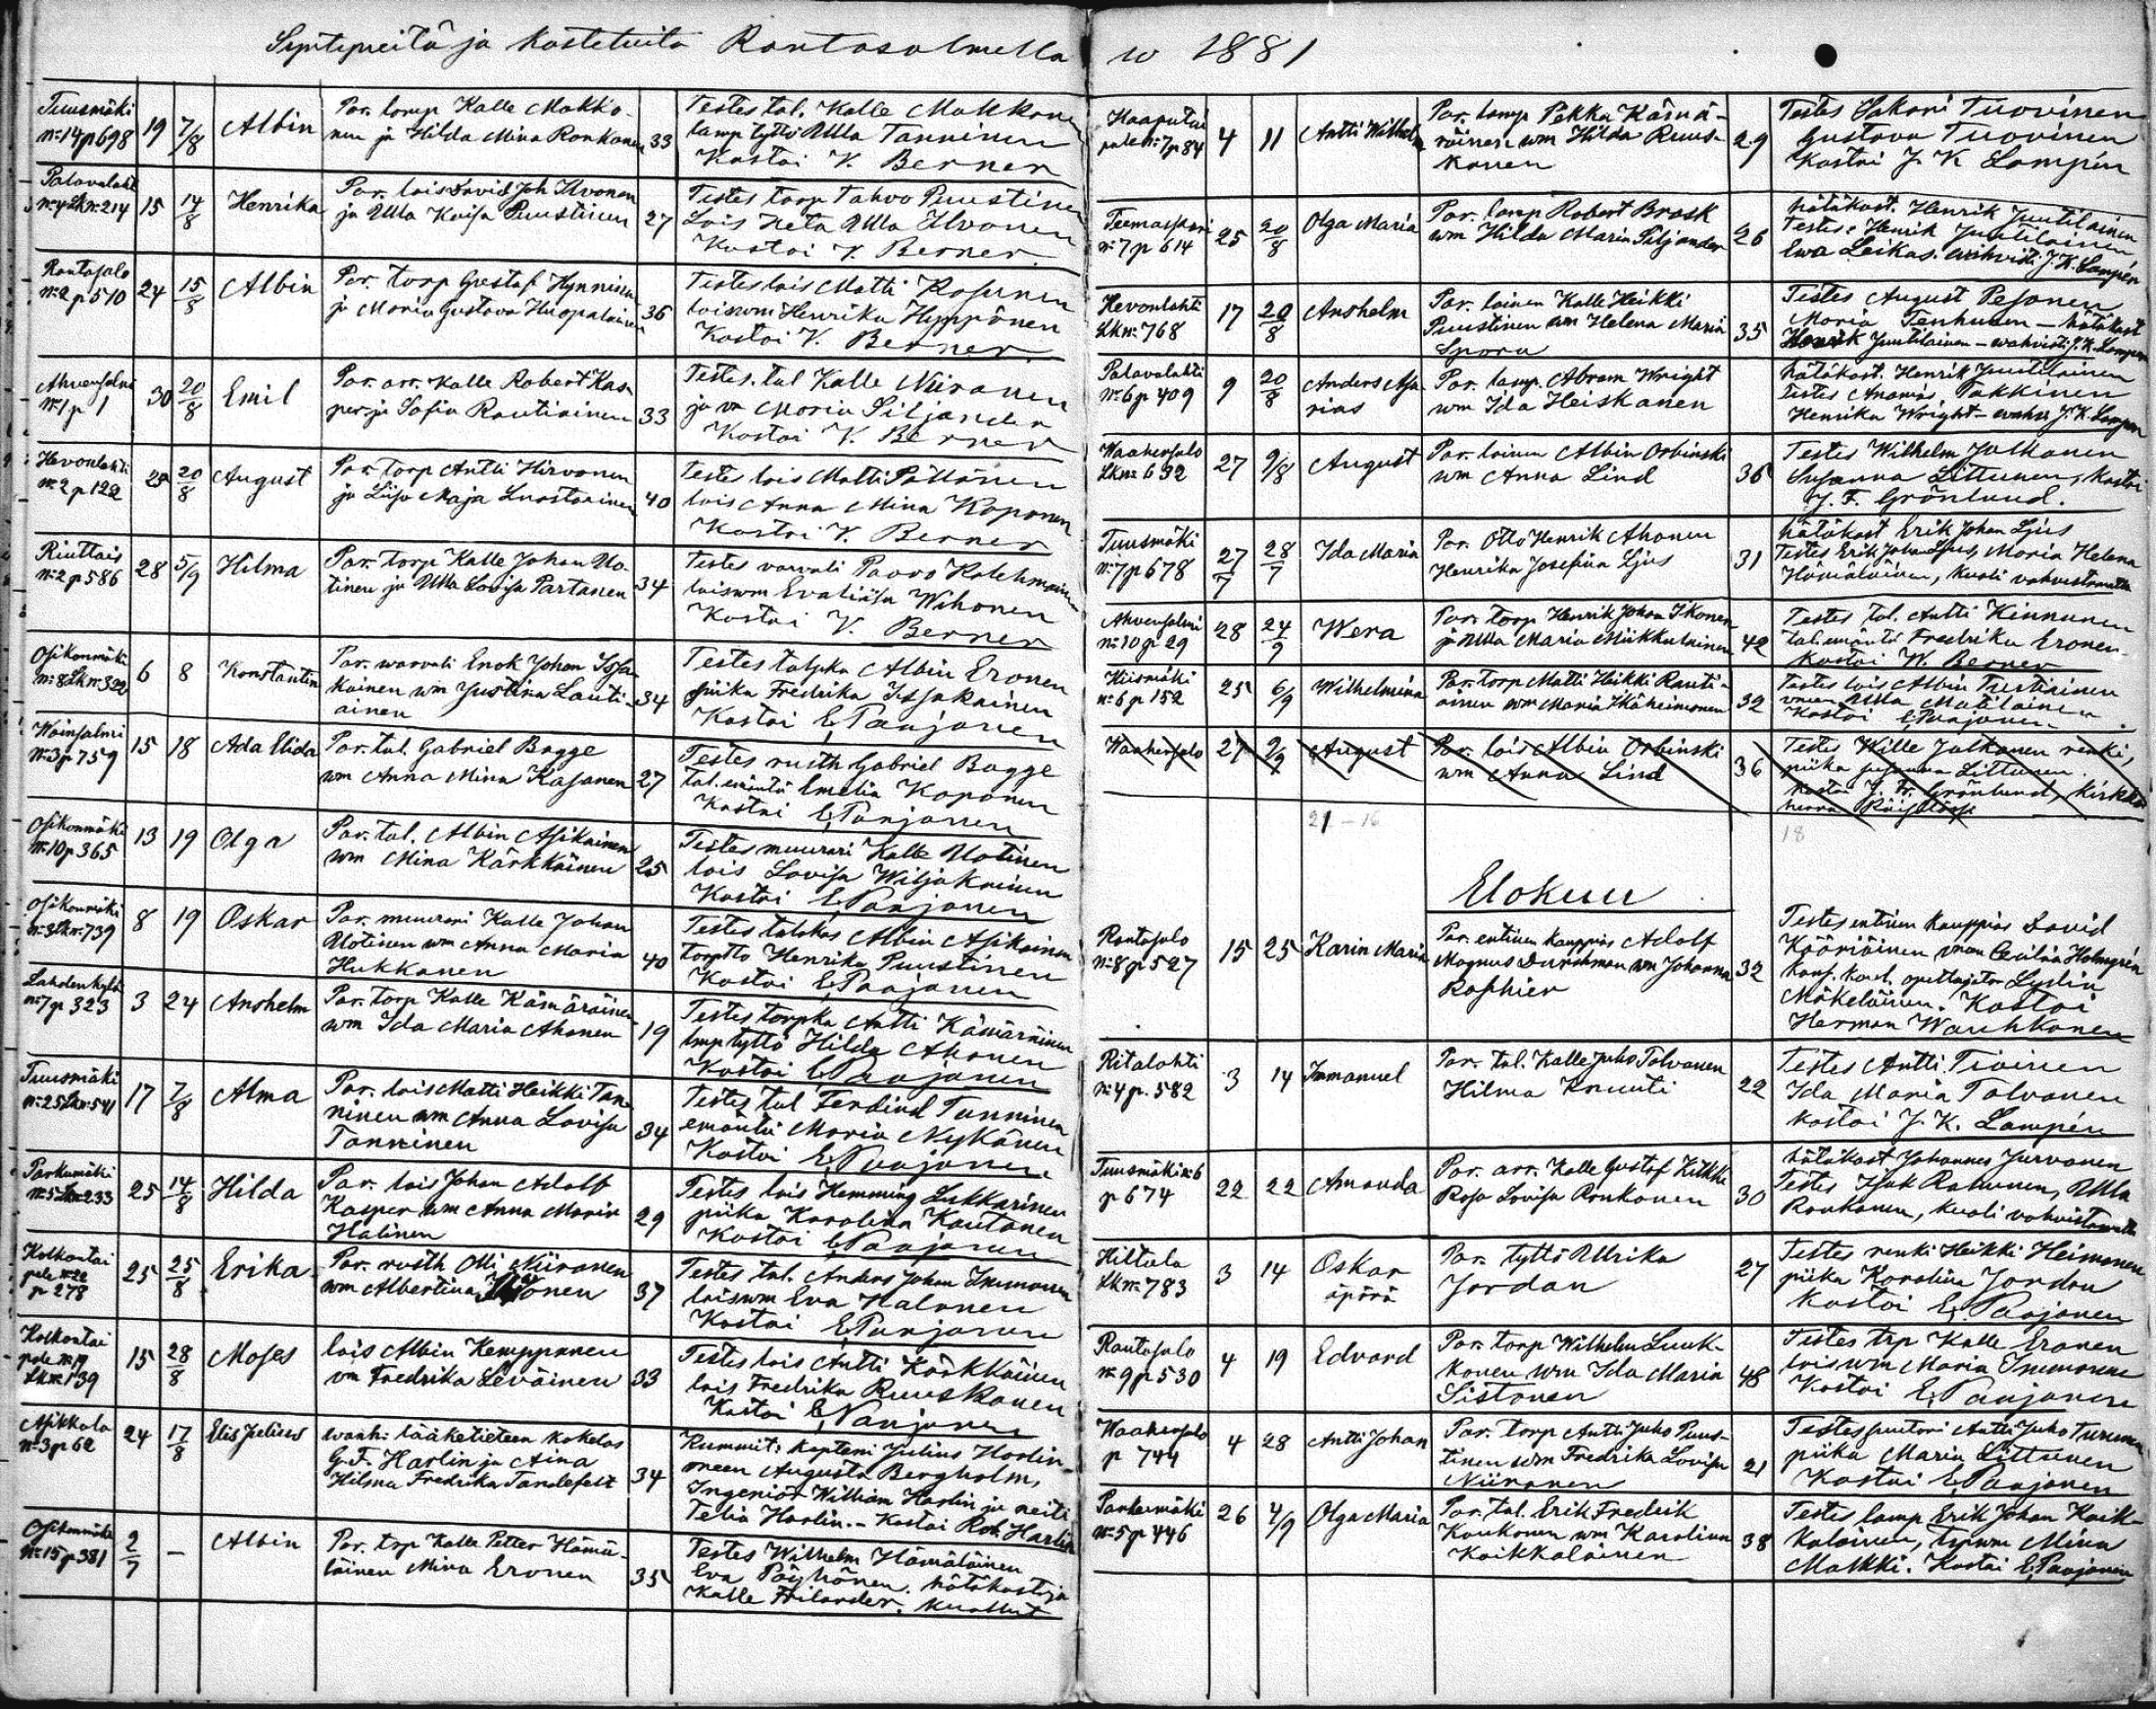 Syntyneitä ja kastetuita Rantasalmella
w 1881
Tuusmäki
No 14 p 698 19 7/8 Albin
Par. lamp Kalle Makko-
nen ja Hilda Mina Ronkanen 33
Testes tal. Kalle Makkonen
lamp tyttö Ulla Tanninen
Kastoi V. Berner
Palavalahti
No 4 Lkn. 214 15 14/8 Henrika
Par. lois David Joh Ilvonen
ja Ulla Kaisa Puustinen 27
Testes torp Tahvo Puustinen
Lois neta Ulla Ilvonen
Kastoi V. Berner
Rantasalo
No 2 p 510 24 15/8 Albin
Par. torp Gustaf Hynninen
ja Maria Gustava Huopalainen 36
Testes lois Matti Kosunen
loiswm Henrika Hyppönen
Kastoi V. Berner
Ahvensalmi
No 1 p 1 30 20/8 Emil
Par. arr. Kalle Robert Kas-
per ja Sofia Rautiainen 33
Testes. tal Kalle Niiranen
ja vm Maria Siljander
Kastoi V. Berner
Hevonlahti
No 2 p 122 20/8 August
Par. torp Antti Hirvonen
ja Liisa Maja Luostarinen 40
Testes lois Matti Pöllänen
lois Anna Mina Koponen
Kastoi V. Berner
Riuttais
No 2 p 586 28 5/9 Hilma
Par. torp Kalle Johan Uo-
tinen ja Ulla Lovisa Partanen 34
Testes vaivali Paavo Kolehmainen
loiswm Evaliisa Wihonen
Kastoi V. Berner
Osikonmäki
No 8 Lkn. 322 6 8 Konstantin
Par. warvali Enok Johan Issa-
kainen wm Justina Lauti-
ainen 34
Testes taljka Albin Eronen
piika Fredrika Issakainen
Kastoi E. Paajanen
Wainsalmi
No 3 p 759 15 18 Ada Elida
Par. tal. Gabriel Bagge
wm Anna Mina Kasanen 27
Testes rusth Gabriel Bagge
tal. emäntä Emelia Koponen
Kastoi E. Paajanen
Osikonmäki
No 10 p 365 13 19 Olga
Par. tal. Albin Asikainen
wm Mina Kärkkäinen 25
Testes muurari Kalle Uotinen
lois Lovisa Wiljakainen
Kastoi E. Paajanen
Osikonmäki
No 3 Lkn. 739 8 19 Oskar
Par. muurari Kalle Johan
Uotinen wm Anna Maria
Hukkanen 40
Testes talokas Albin Asikainen
torptto Henrika Puustinen
Kastoi E. Paajanen
Lahdenkylä
No 7 p 323 3 24 Anshelm
Par. torp Kalle Kämäräinen
wm Ida Maria Ahonen 19
Testes torpka Antti Kämäräinen
lmp tyttö Hilda Ahonen
Kastoi E. Paajanen
Tuusmäki
No 25 Lkn. 541 17 7/8 Alma
Par. lois Matti Heikki Tan-
ninen wm Anna Lovisa
Tanninen 34
Testes tal Ferdind Tanninen
emäntä Maria Nykänen
Kastoi E. Paajanen
Parkumäki
No 5 Lkn 233 25 14/8 Hilda
Par. lois Johan Adolf
Kasper wm Anna Maria
Halinen 29
Testes lois Hemming Lukkarinen
piika Karolina Kautanen
Kastoi E. Paajanen
Kolkontai
pale No 22
p 278 25 25/8 Erika
Par. rusth Olli Niiranen
wm Albertina 37
Testes tal. Anders Johan Immonen
loiswm Eva Halonen
Kastoi E. Paajanen
Kolkontai
pale No 19
Lkn. 139 15 28/8 Moses
lois Albin Kemppanen
vm Fredrika Leväinen 33
Testes lois Antti Kärkkäinen
lois Fredrika Ruuskanen
Kastoi E. Paajanen
Asikkala
No 3 p 62 24 17/8 Elis Julius
wanh: lääketieteen kokelas
G. F. Harlin ja Aina
Hilma Fredrika Tandefelt 34
Kummit: kapteni Julius Harlin
neen Augusta Bergholm,
Ingeniör William Harlin ja neiti
Telia Harlin. - Kastoi Rob. Harlin
Osikonmäki
No 15 p 381 2/7 - Albin
Par. trp Kalle Petter Hämä-
läinen Mina Eronen 35
Testes Wilhelm Hämäläinen
Eva Pöyhönen. hätäkastoja
Kalle Frilander. kuollut
Haapatai
pale No 7 p 84 4 11 Antti Wilhelm
Par. lamp Pekka Kämä-
räinen wm Hilda Ruus-
kanen 29
Testes Sakari Tuovinen
Gustava Tuovinen
Kastoi J. K. Lampén
Teemassaari
No 7 p 614 25 20/8 Olga Maria
Par. lamp Robert Brask
wm Hilda Maria Siljander 26
hätäkast. Henrik Juutilainen
Testes: Henrik Juutilainen
Ewa Leikas. wahvisti J. K. Lampén
Hevonlahti
Lkn. 768 17 20/8 Anshelm
Par. loinen Kalle Heikki
Puustinen wm Helena Maria
Spora 35
Testes August Pesonen
Maria Tenhunen - hätäkast
Henrik Juutilainen - wahvisti J. K. Lampen
Palavalahti
No 6 p 409 9 20/8 Anders Asa
rias
Par. lamp. Abram Wright
wm Ida Heiskanen
hätäkast. Henrik Juutilainen
Testes Ananias Takkinen
Henrika Wright - wahv. J. K. Lampen
Waahersalo
Lkn. 692 27 9/8 August
Par. loinen Albin Orbinski
wm Anna Lind 36
Testes Wilhelm Jalkanen
Susanna Littunen, Kastoi
J. F. Grönlund.
Tuusmäki
No 7 p 678 27/7 28/7 Ida Maria
Par. Otto Henrik Ahonen
Henrika Josefina Ljus 31
hätäkast Erik Johan Ljus
Testes Erik Johan Ljus, Maria Helena
Hämäläinen, Kuoli vahvistamatta
Ahvensalmi
No 10 p 29 28 24/9 Wera
Par. torp Henrik Johan Ikonen
ja Ulla Maria Miikkulainen 42
Testes tal. Antti Kinnunen
tal. emäntä Fredrika Eronen
Kastoi W. Berner
Hiismäki
No 6 p 152 25 6/9 Wilhelmina
Par. torp Matti Heikki Rauti-
ainen wm Maria Ikäheimonen 32
Testes lois Albin Tiestiainen
Ulla Matilainen
Kastoi E. Paajanen
Waahersalo 27 9/9 August
Par. lois Albin Orbinski
wm Anna Lind 36
Testes Wille Jalkanen renki,
piika Susanna Littunen.
Kastoi J. Fr. Grönlund, Kirkko
herra
21 - 16
18
Elokuu
Rantasalo
No 8 p 527 15 25 Karin Maria
Par. entinen kauppias Adolf
Magnus Durchman wm Johanna
Roschier 32
Testes entinen kauppias David
Kääriäinen, Cecilia Holmgrén
kans. koul. opettajatar Lydia
Mäkeläinen. Kastoi
Herman Wauhkonen
Ritalahti
No 4 p. 582 3 14 Immanuel
Par. tal. Kalle Juho Tolvanen
Hilma Knuuti 22
Testes Antti Tiainen
Ida Maria Tolvanen
Kastoi J. K. Lampén
Tuusmäki No 6
p 674 22 22 Amanda
Par. arr. Kalle Gustaf
Rosa Lovisa Ronkanen 30
hätäkast Johannes Jurvanen
Testes Isak Rahunen, Ulla
Ronkanen, kuoli vahvistamatta
Hiltula
Lkn. 783 3 14 Oskar
äpärä
Par. tyttö Ulrika
Jordan 27
Testes renki Heikki Heimonen
piika Karolina Jordan
Kastoi E. Paajanen
Rantasalo
No 9 p 530 4 19 Edvard
Par. torp Wilhelm Luuk-
konen wm Ida Maria
Sistonen 48
Testes trp Kalle Eronen
loiswm Maria Immonen
Kastoi E. Paajanen
Waahersalo
p 744 4 28 Antti Johan
Par. torp Antti Juho Puus-
tinen wm Fredrika Lovisa
Niiranen 21
Testes puutori Antti Juho Turunen
piika Maria Littunen
Kastoi E. Paajanen
Parkumäki
No 5 p 446 26 4/9 Olga Maria
Par. tal. Erik Fredrik
Kaukonen wm Karolina
Kaikkalainen 38
Testes lamp Erik Johan Kaik-
kalainen, trpwm Mina
Malkki. Kastoi E. Paajanen